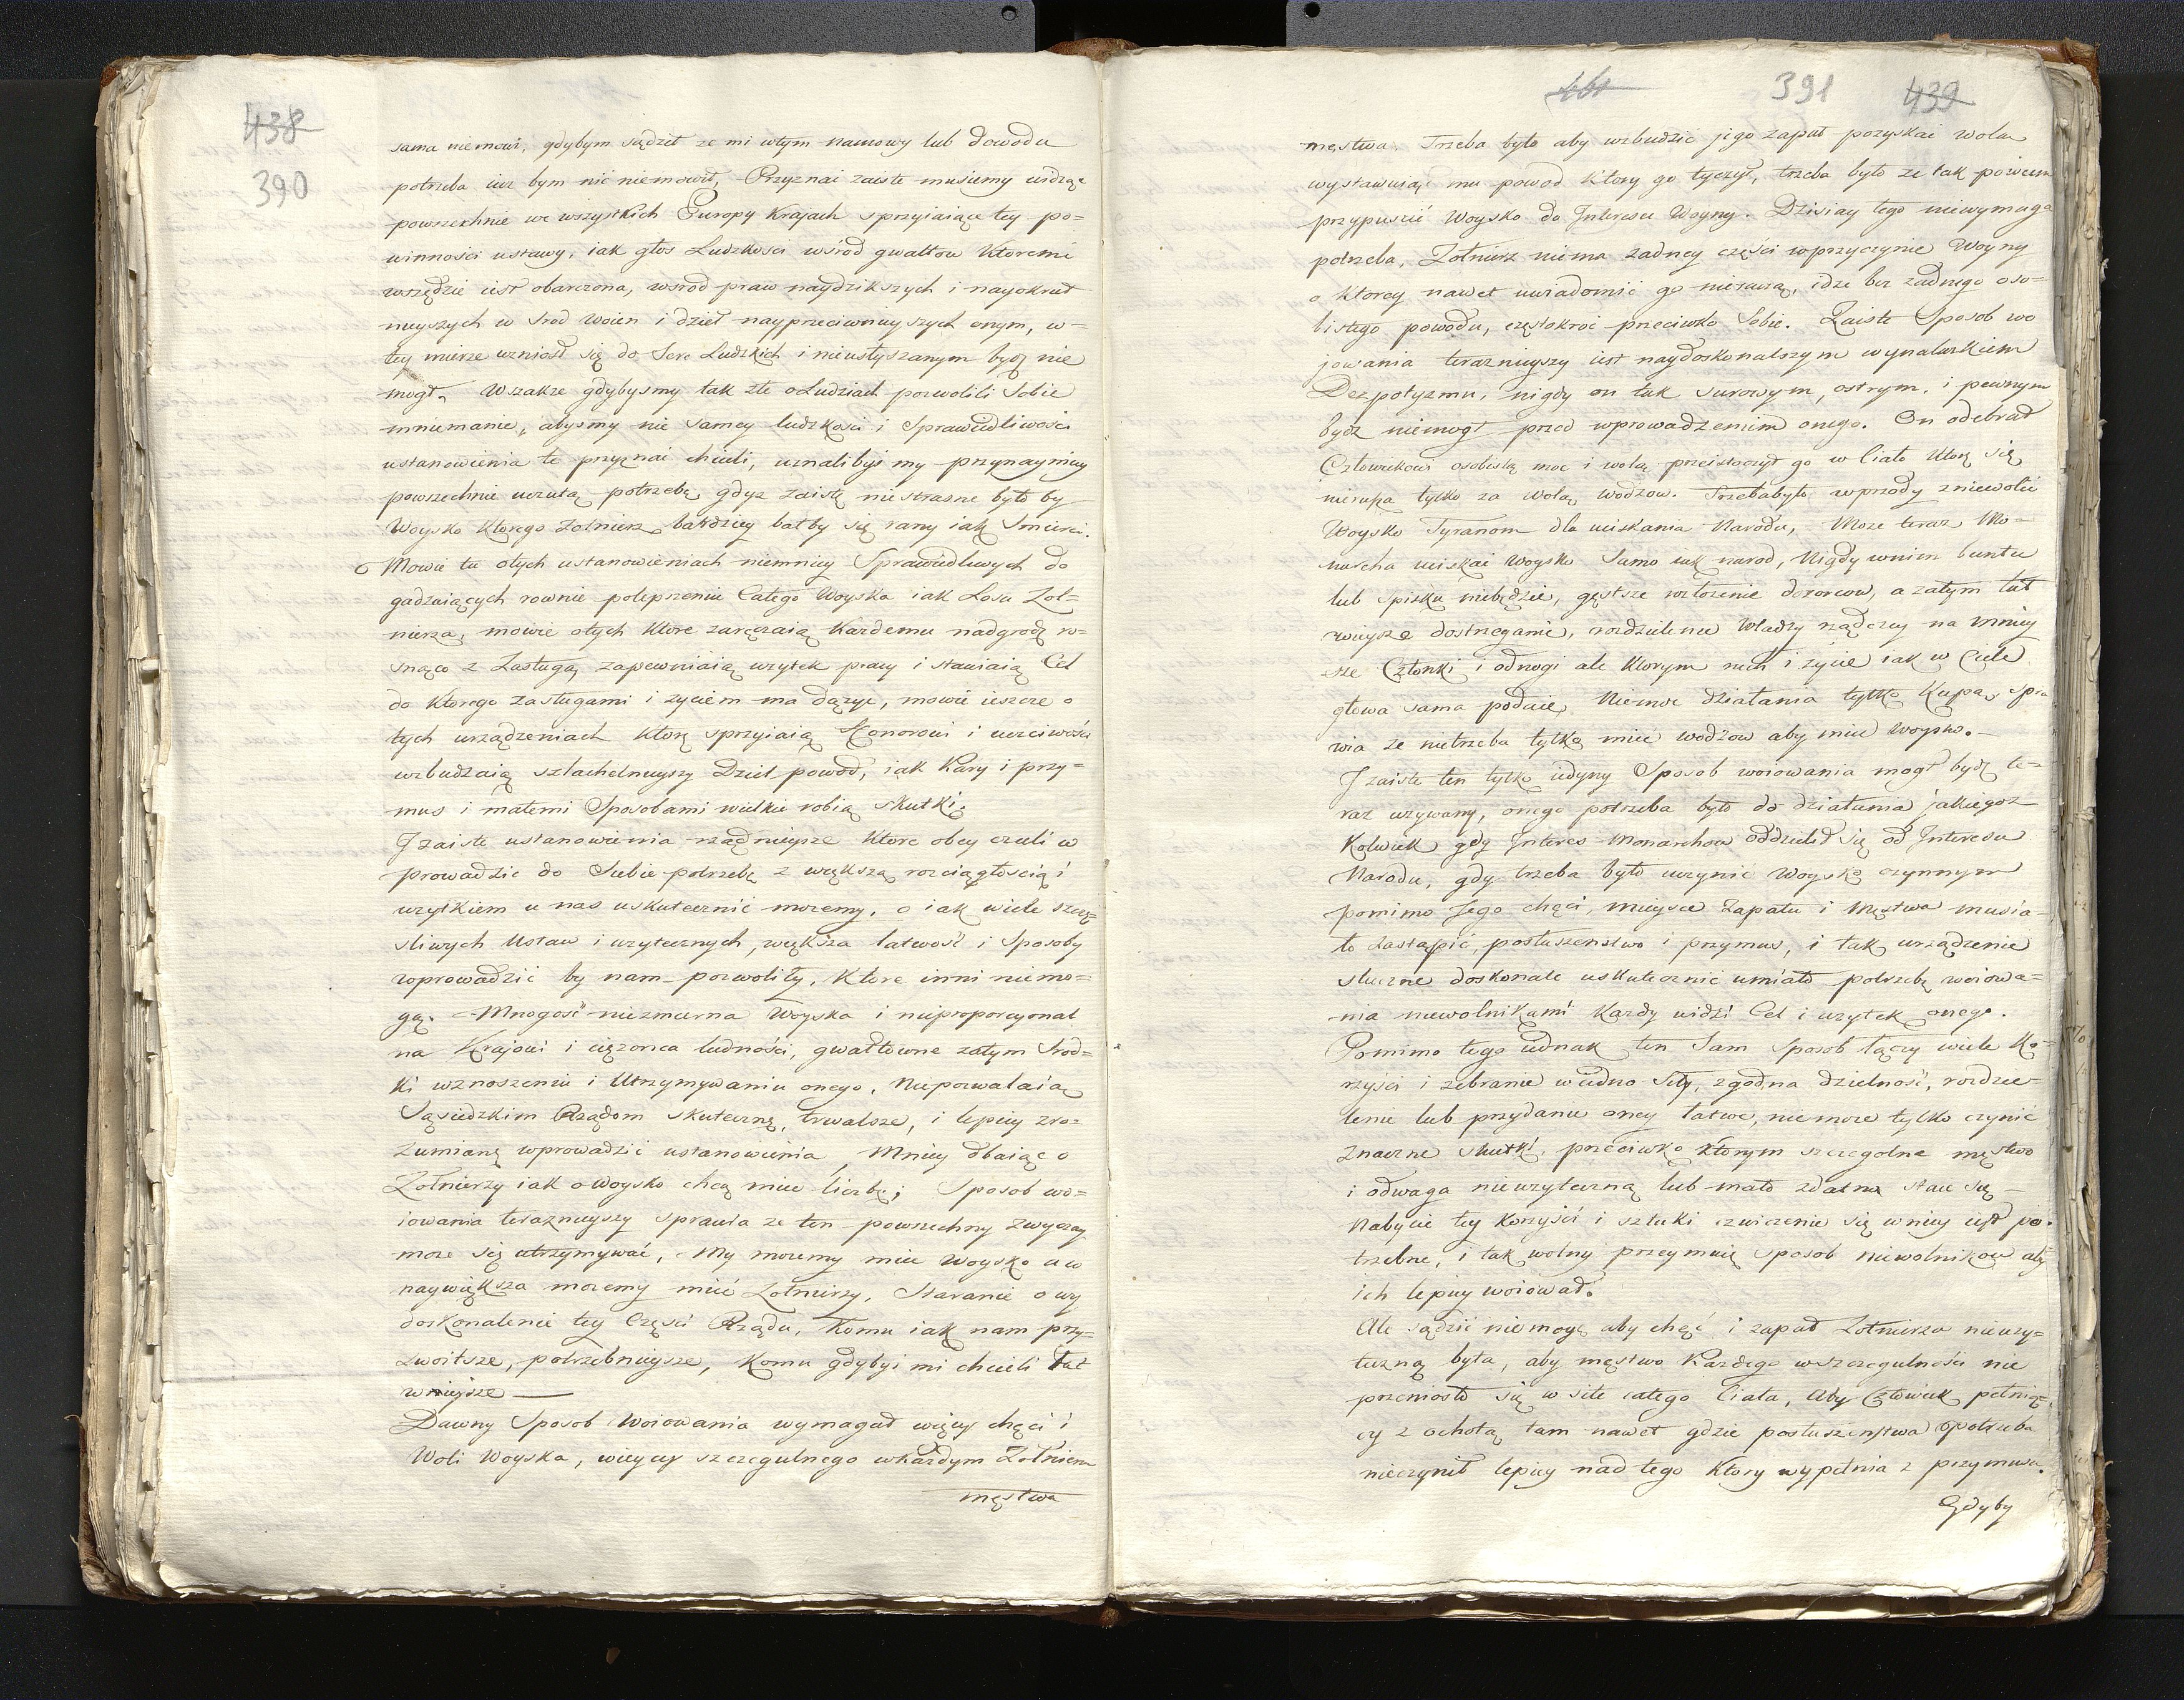 438
390
sama niemowi, gdybym sądził ze mi wtym namowy lub dowodu
potrzeba iuz bym nic niemowił, Przyznai zaiste musiemy widząc
powszechnie we wszystkich Europy Krajach sprzyiaiące tey po=
winności ustawy, iak głos Ludzkosci wsrod gwałtow Ktoremi
wszędzie iest obarczona, wsrod praw naydzikszych i nayokrut
nieyszych w srod woien i dzieł nayprzeciwnieyszych onym, w=
tey mierze wzniosł się do Serc Ludzkich i nieusłyszanym bydz nie
mogł. Wszakze gdybysmy tak zle o Ludziach pozwolili Sobie
mniemanie, abysmy nie samey ludzkosci i Sprawiedliwosci
ustanowienia te przyznai chcieli, uznalibysmy przynaymniey
powszechnie uczutą potrzebę, gdyz zaiste niestraszne było by
Woysko Ktorego Zołnierz bardziey bałby się rany iak Smierci.
Mowie tu otych ustanowieniach niemniey Sprawiedliwych do
gadzaiących rownie polepszeniu Całego Woyska iak Losu Zoł=
nierza, mowie otych Ktore zaręczaią Kazdemu nadgrodę ro=
snąco z Zasługą, zapewniaią uzytek pracy i stawiaią Cel
do Ktorego zasługami i zyciem ma dązyc, mowie ieszcze o
tych urządzeniach Ktore sprzyiaią Honorowi i uczciwości
wzbudzaią szlachetnieyszy Dzieł powod, iak Kary i przy=
mus i małemi Sposobami wielkie robią skutki.
I zaiste ustanowienia rządnieysze Ktore obcy czuli w
prowadzic do Siebie potrzebę z większą rozciągłoscią i
uzytkiem u nas uskutecznić mozemy, o iak wiele szczę=
sliwych Ustaw i uzytecznych, większa łatwość i Sposoby
wprowadzić by nam pozwoliły, Ktore inni niemo=
gą. Mnogość niezmierna Woyska i nieproporcyonal
na Krajowi i ciężąca ludności, gwałtowne zatym Srod=
ki wznoszeniu i Utrzymywaniu onego, Niepozwalaią
Sąsiedzkim Rządom skuteczne, trwalsze, i lepiey zro=
zumiane wprowadzić ustanowienia, Mniey dbaiąc o
Zołnierzy iak o woysko chcą miec liczbę; Sposob wo=
iowania teraznieyszy sprawia ze ten powszechny zwyczay
moze się utrzymywać, My mozemy miec Woysko a w
naywiększa mozemy mieć Zołnierzy, Staranie o wy
doskonalenie tey Części Rządu, Komu iak nam przy=
zwoitsze, potrzebnieysze, Komu gdybyi mi chcieli łat
wnieysze —
Dawny Sposob Woiowania wymagał więcey chęci i
Woli Woyska, więcey szczegulnego wkazdym Zołnierzu
męstwa
461 391 439
męstwa. Trzeba było aby wzbudzić jego zapał pozyskai wolą
wystawuiąc mu powod Ktory go tyczył, trzeba było ze tak powiem
przypuscić Woysko do Interesu Woyny. Dzisiay tego niewymaga
potrzeba, Zołnierz niema zadney części wprzyczynie Woyny
o Ktorey nawet uwiadomić go nieraczą, idzie bez zadnego oso=
bistego powodu, częstokroć przeciwko Sobie. Zaiste Sposob wo
jowania teraznieyszy iest naydoskonalszym wynalazkiem
Dezpotyzmu, nigdy on tak surowym, ostrym, i pewnym
bydz niemogł przed wprowadzeniem onego. On odebrał
Człowiekowi osobistą moc i wolą przeistoczył go w Ciało Ktore się
nierusza tylko za wolą wodzow. Trzebabyło wprzody zniewolić
Woysko Tyranom dla uciskania Narodu, Moze teraz Mo=
narcha uciskai woysko Samo iak narod, Nigdy wnim buntu
lub Spisku niebędzie, gęstsze rozłozenie dozorcow, a zatym łat
wieysze dostrzeganie, rozdzielenie Władzy rządzcey na mniey
sze Członki i odnogi ale Ktorym ruch i zycie iak w Ciele
głowa sama podaie, Niemoc działania tylko Kupą, spra
wia ze nietrzeba tylko miec wodzow aby miec woysko.
I zaiste ten tylko iedyny Sposob woiowania mogł bydz te=
raz uzywany, onego potrzeba było do działania jakiegoz=
Kolwiek, gdy Interes Monarchow oddzielił się od Interesu
Narodu, gdy trzeba było uczynić Woysko czynnym
pomimo Jego chęci, mieysce Zapału i Męstwa musia=
ło zastąpić, posłuszenstwo i przymus, i tak urządzenie
słuczne doskonale uskutecznić umiało potrzebę woiowa=
nia niewolnikami Kazdy widzi Cel i uzytek onego.
Pomimo tego iednak ten Sam Sposob łączy wiele Ko=
rzyści i zebranie w iedno Siły, zgodna dzielność, rozdzie=
lenie lub przydanie oney łatwe, niemoze tylko czynić
znaczne skutki, przeciwko Ktorym szczegolne męstwo
i odwaga nieuzyteczną lub mało zdatną staie się —
Nabycie tey Korzyści i sztuki czwiczenie się wniey iest po.
trzebne, i tak wolny przeymuię Sposob niewolnikow aby
ich lepiey woiował.
Ale sądzić niemogę aby chęć i zapał Zołnierza nieuzy=
teczną była, aby męstwo Kazdego wszczegulności nie
przeniosło się w siłe całego Ciała, Aby Człowiek pełnią=
cy z ochotą tam nawet gdzie posłuszenstwa potrzeba
nieczynił lepiey nad tego Ktory wypełnia z przymusu.
Gdyby